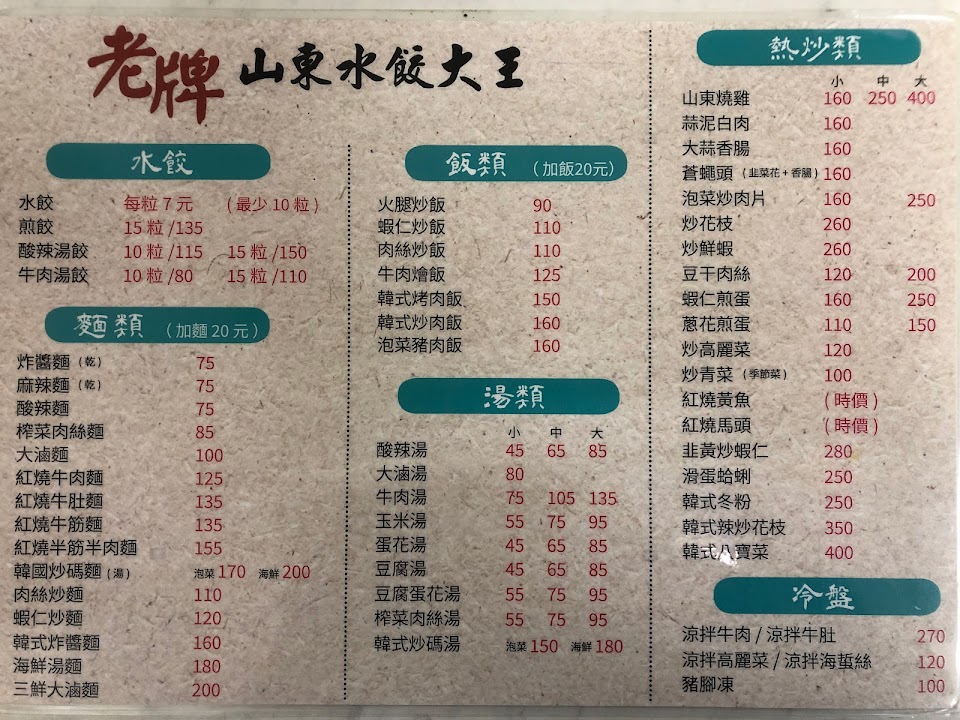 老牌 山東水餃大王
水餃
水餃 每粒 7 元 (最少 10 粒)
煎餃 15 粒 /135
酸辣湯餃 10 粒 /115 15 粒 /150
牛肉湯餃 10 粒 /80 15 粒 /110
麵類 (加麵 20 元)
炸醬麵 (乾) 75
麻辣麵 (乾) 75
酸辣麵 75
榨菜肉絲麵 85
大滷麵 100
紅燒牛肉麵 125
紅燒牛肚麵 135
紅燒牛筋麵 135
紅燒半筋半肉麵 155
韓國炒碼麵 (湯) 泡菜 170 海鮮 200
肉絲炒麵 110
蝦仁炒麵 120
韓式炸醬麵 160
海鮮湯麵 180
三鮮大滷麵 200
飯類 (加飯20元)
火腿炒飯 90
蝦仁炒飯 110
肉絲炒飯 110
牛肉燴飯 125
韓式烤肉飯 150
韓式炒肉飯 160
泡菜豬肉飯 160
湯類
小 中 大
酸辣湯 45 65 85
大滷湯 80
牛肉湯 75 105 135
玉米湯 55 75 95
蛋花湯 45 65 85
豆腐湯 45 65 85
豆腐蛋花湯 55 75 95
榨菜肉絲湯 55 75 95
韓式炒碼湯 泡菜 150 海鮮 180
熱炒類
小 中 大
山東燒雞 160 250 400
蒜泥白肉 160
大蒜香腸 160
蒼蠅頭 (韭菜花 + 香腸) 160
泡菜炒肉片 160 250
炒花枝 260
炒鮮蝦 260
豆干肉絲 120 200
蝦仁煎蛋 160 250
蔥花煎蛋 110 150
炒高麗菜 120
炒青菜 (季節菜) 100
紅燒黃魚 (時價)
紅燒馬頭 (時價)
韭黃炒蝦仁 280
滑蛋蛤蜊 250
韓式冬粉 250
韓式辣炒花枝 350
韓式八寶菜 400
冷盤
涼拌牛肉 / 涼拌牛肚 270
涼拌高麗菜 / 涼拌海蜇絲 120
豬腳凍 100